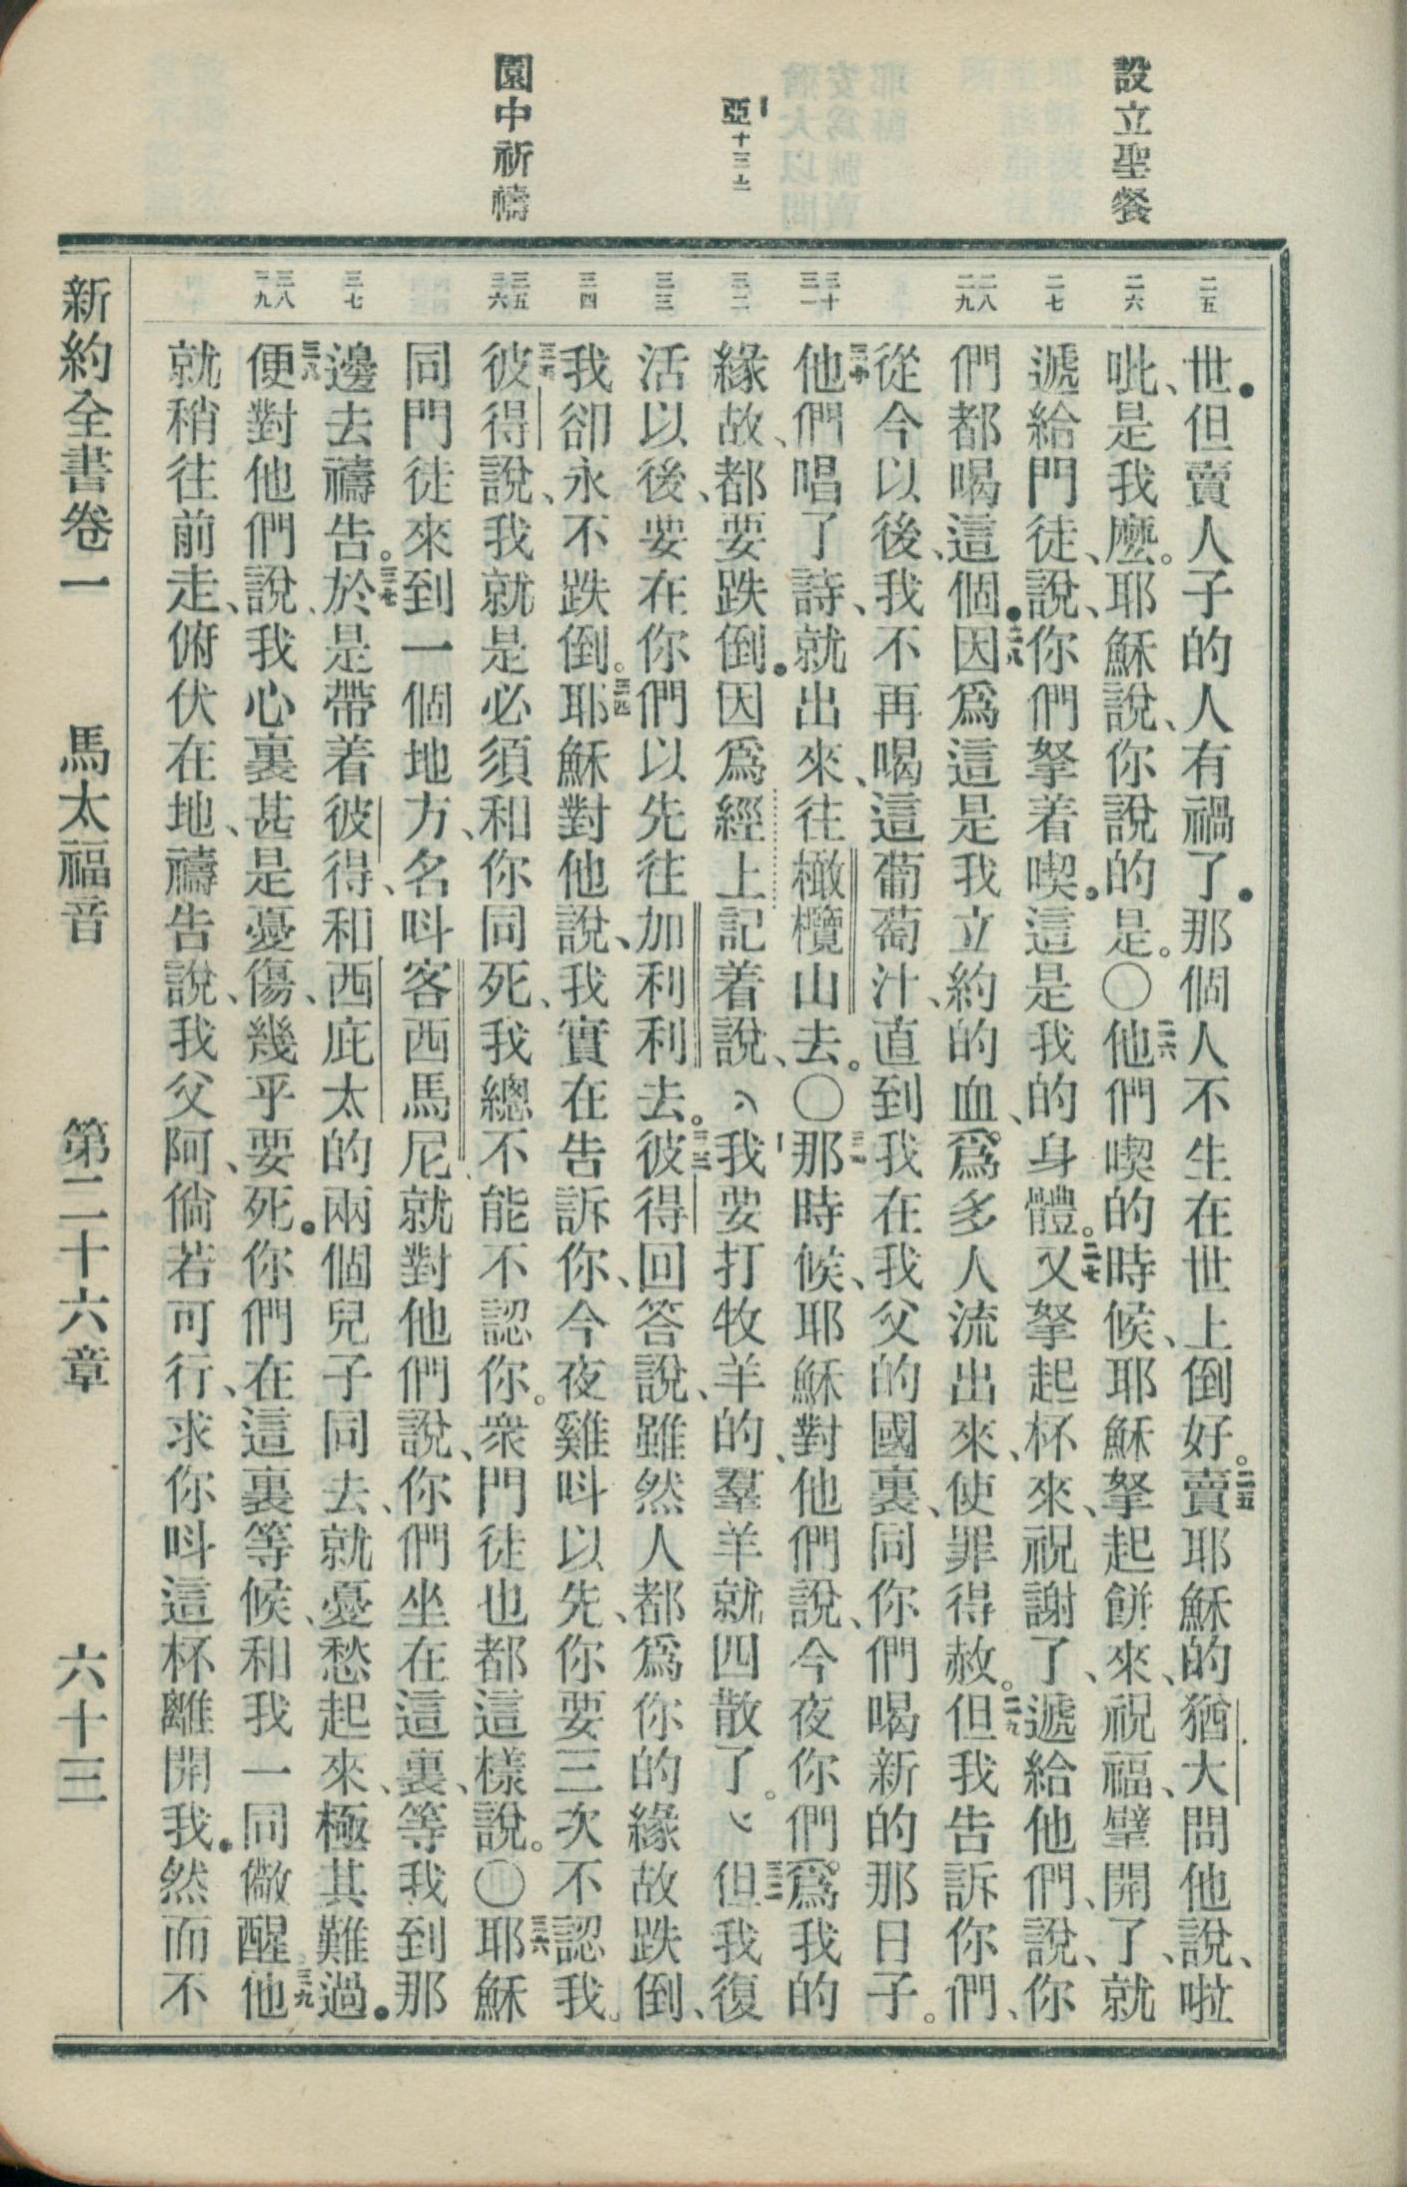 設立聖餐
亞十三7
園中祈禱
二五
二六
二七
二八
二九
三十
三一
三二
三三
三四
三五
三六
三七
三八
三九
世．但賣人子的人有禍了．那個人不生在世上倒好。二五賣耶穌的猶大問他說、啦
呲、是我麼。耶穌說、你說的是。〇二六他們喫的時候、耶穌拏起餅來、祝福、擘開了、就
遞給門徒、說、你們拏着喫．這是我的身體。二七又拏起杯來、祝謝了、遞給他們、說、你
們都喝這個．二八因爲這是我立約的血、爲多人流出來、使罪得赦。二九但我告訴你們、
從今以後、我不再喝這葡萄汁、直到我在我父的國裏、同你們喝新的那日子。
三十他們唱了詩、就出來、往橄欖山去。〇三一那時候、耶穌對他們說、今夜你們爲我的
緣故、都要跌倒．因爲經上記着說、我要打牧羊的、羣羊就四散了。三二但我復
活以後、要在你們以先往加利利去。三三彼得回答說、雖然人都爲你的緣故跌倒、
我卻永不跌倒。三四耶穌對他說、我實在告訴你、今夜雞呌以先、你要三次不認我。
三五彼得說、我就是必須和你同死、我總不能不認你。衆門徒也都這樣說。〇三六耶穌
同門徒來到一個地方、名呌客西馬尼就對他們說、你們坐在這裏、等我到那
邊去禱告。三七於是帶着彼得、和西庇太的兩個兒子同去、就憂愁起來、極其難過．
三八便對他們說、我心裏甚是憂傷、幾乎要死．你們在這裏等候、和我一同儆醒三九他
就稍往前走、俯伏在地、禱告說、我父阿、倘若可行、求你呌這杯離開我．然而不
新約全書卷一　馬太福音　第二十六章　六十三